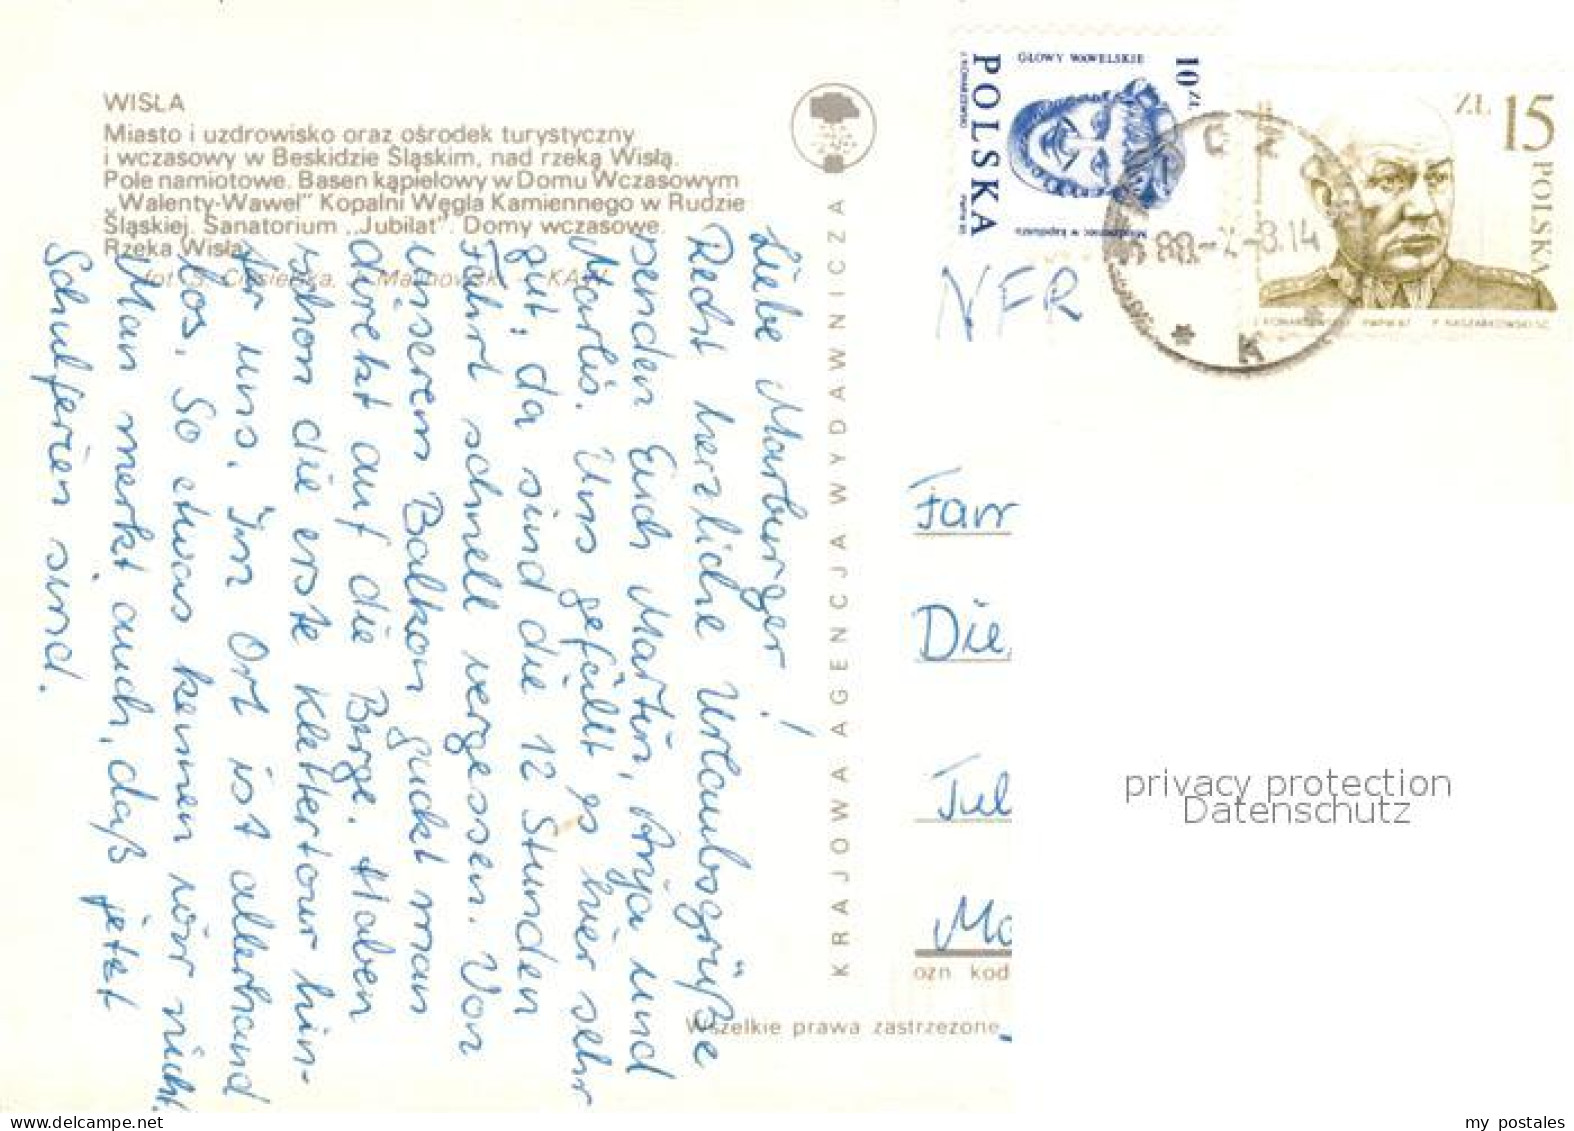 WISŁA
Miasto i uzdrowisko oraz ośrodek turystyczny
i wczasowy w Beskidzie Śląskim, nad rzeką Wisłą.
Pole namiotowe. Basen kąpielowy w Domu Wczasowym
„Walenty-Wawel" Kopalni Węgla Kamiennego w Rudzie
Śląskiej. Sanatorium „Jubilat". Domy wczasowe.
Rzeka Wisła
fot. S. KAW
Liebe Marburger!
Recht herzliche Urlaubsgrüße
senden Euch Martin, Anja und
Marlis. Uns gefällt es hier sehr
gut; da sind die 12 Stunden
Fahrt schnell vergessen. Von
unserem Balkon guckt man
direkt auf die Berge. Haben
schon die erste Klettertour hin-
ter uns. Im Ort ist allerhand
los. So etwas kennen wir nicht.
Man merkt auch, daß jetzt
Schulferien sind.
KRAJOWA AGENCJA WYDAWNICZA
GŁOWY WAWELSKIE
10 ZŁ
POLSKA
ZŁ 15
POLSKA
88.-7.-8.14
K
NFR
Fam
Die
Jul
Ma
ozn kod
Wszelkie prawa zastrzeżone
privacy protection
Datenschutz
delcampe.net
my_postales